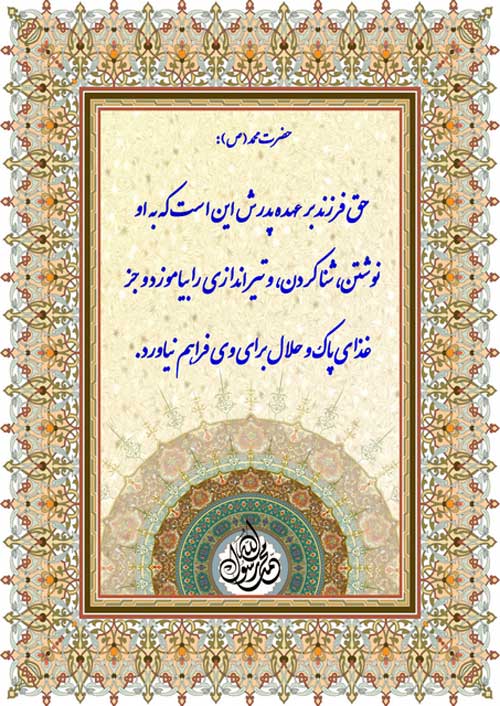 حضرت محمد (ص):
حق فرزند بر عهده پدرش این است که به او
نوشتن، شنا کردن، و تیراندازی را بیاموزد و جز
غذای پاک و حلال برای وی فراهم نیاورد.
محمد رسول الله